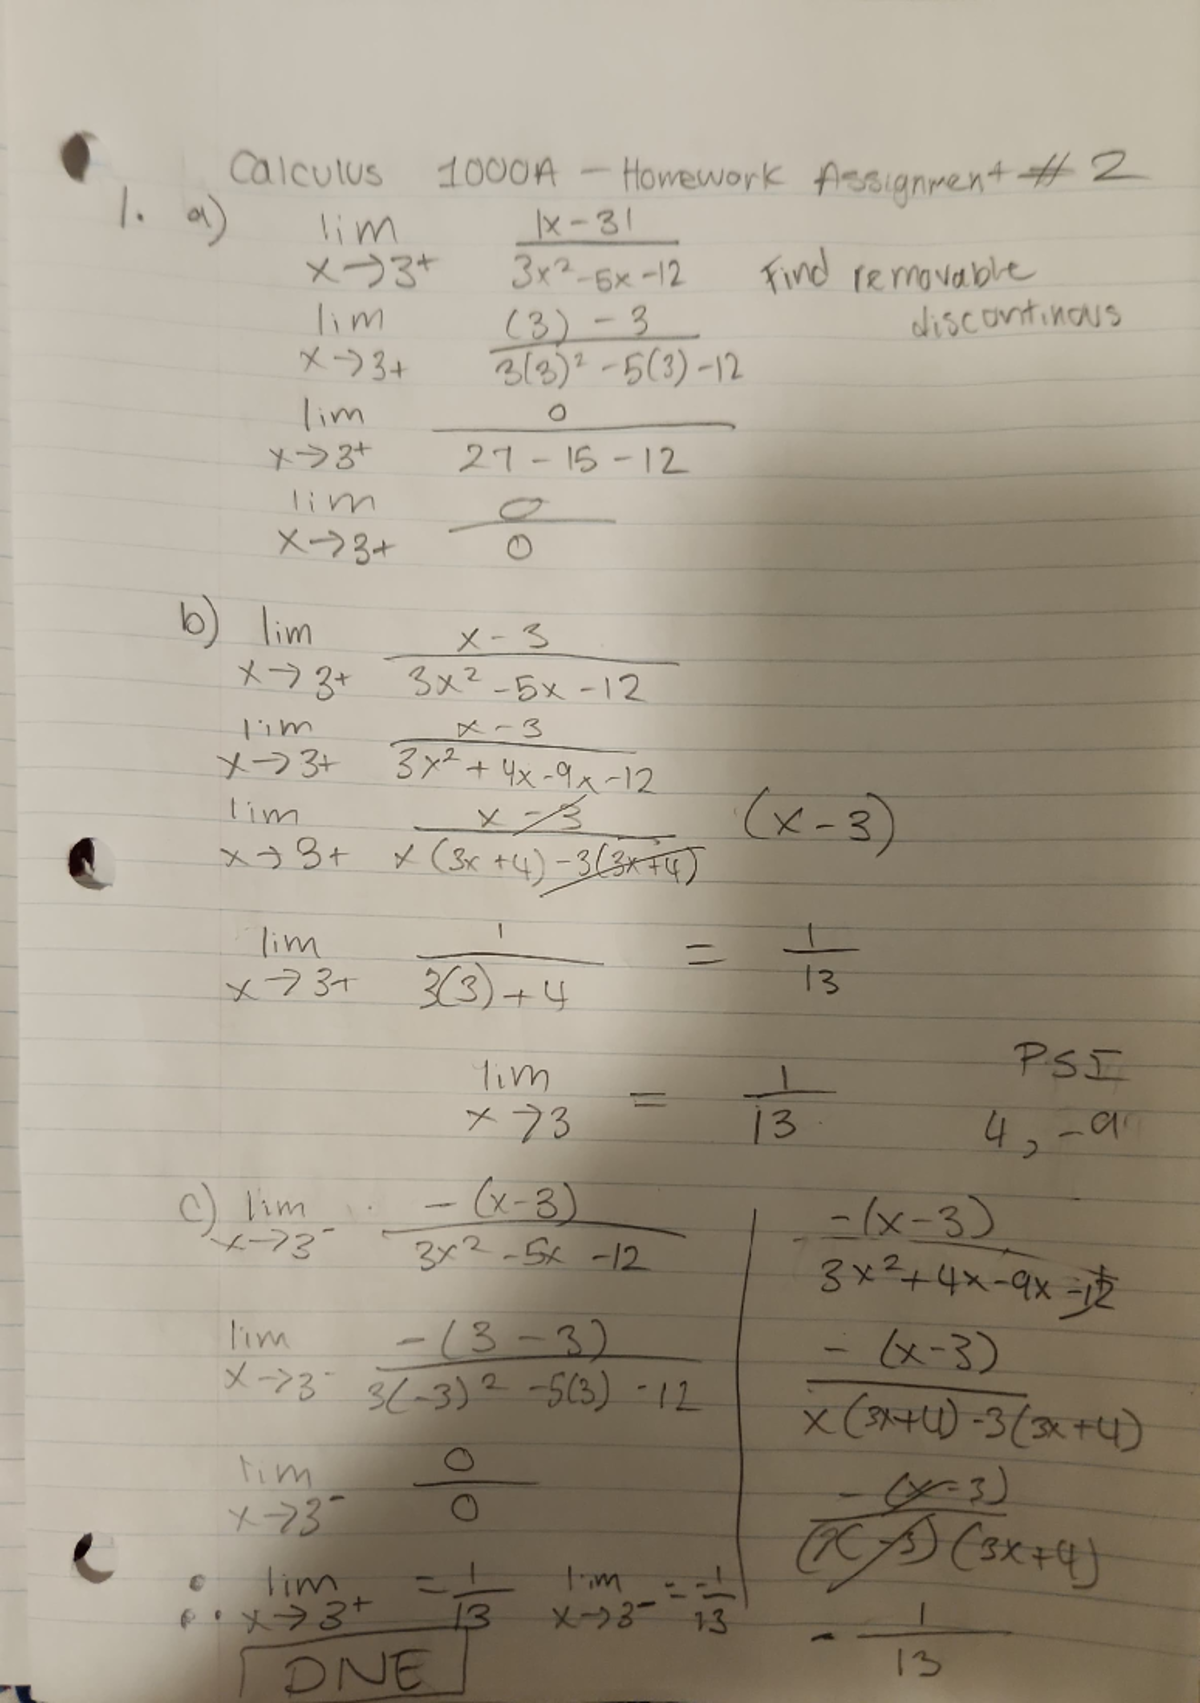 Calculus 1000A - Homework Assignment # 2
1. a) lim x→3+ |x-3| / 3x² - 5x - 12 Find removable
discontinous
lim x→3+ (3) - 3 / 3(3)² - 5(3) - 12
lim x→3+ 0 / 27 - 15 - 12
lim x→3+ 0/0
b) lim x→3+ x - 3 / 3x² - 5x - 12
lim x→3+ x - 3 / 3x² + 4x - 9x - 12
lim x→3+ x - 3 / x(3x+4) - 3(3x+4) (x-3)
lim x→3+ 1 / 3(3) + 4 = 1/13
lim x→3 = 1/13
PSI
4, -9
c) lim x→3⁻ -(x-3) / 3x² - 5x - 12
lim x→3⁻ -(3-3) / 3(-3)² - 5(3) - 12
lim x→3⁻ 0/0
-(x-3) / 3x² + 4x - 9x - 12
-(x-3) / x(3x+4) - 3(3x+4)
-(x-3) / (x-3)(3x+4)
- 1/13
∴ lim x→3+ = 1/13 lim x→3⁻ = -1/13
DNE